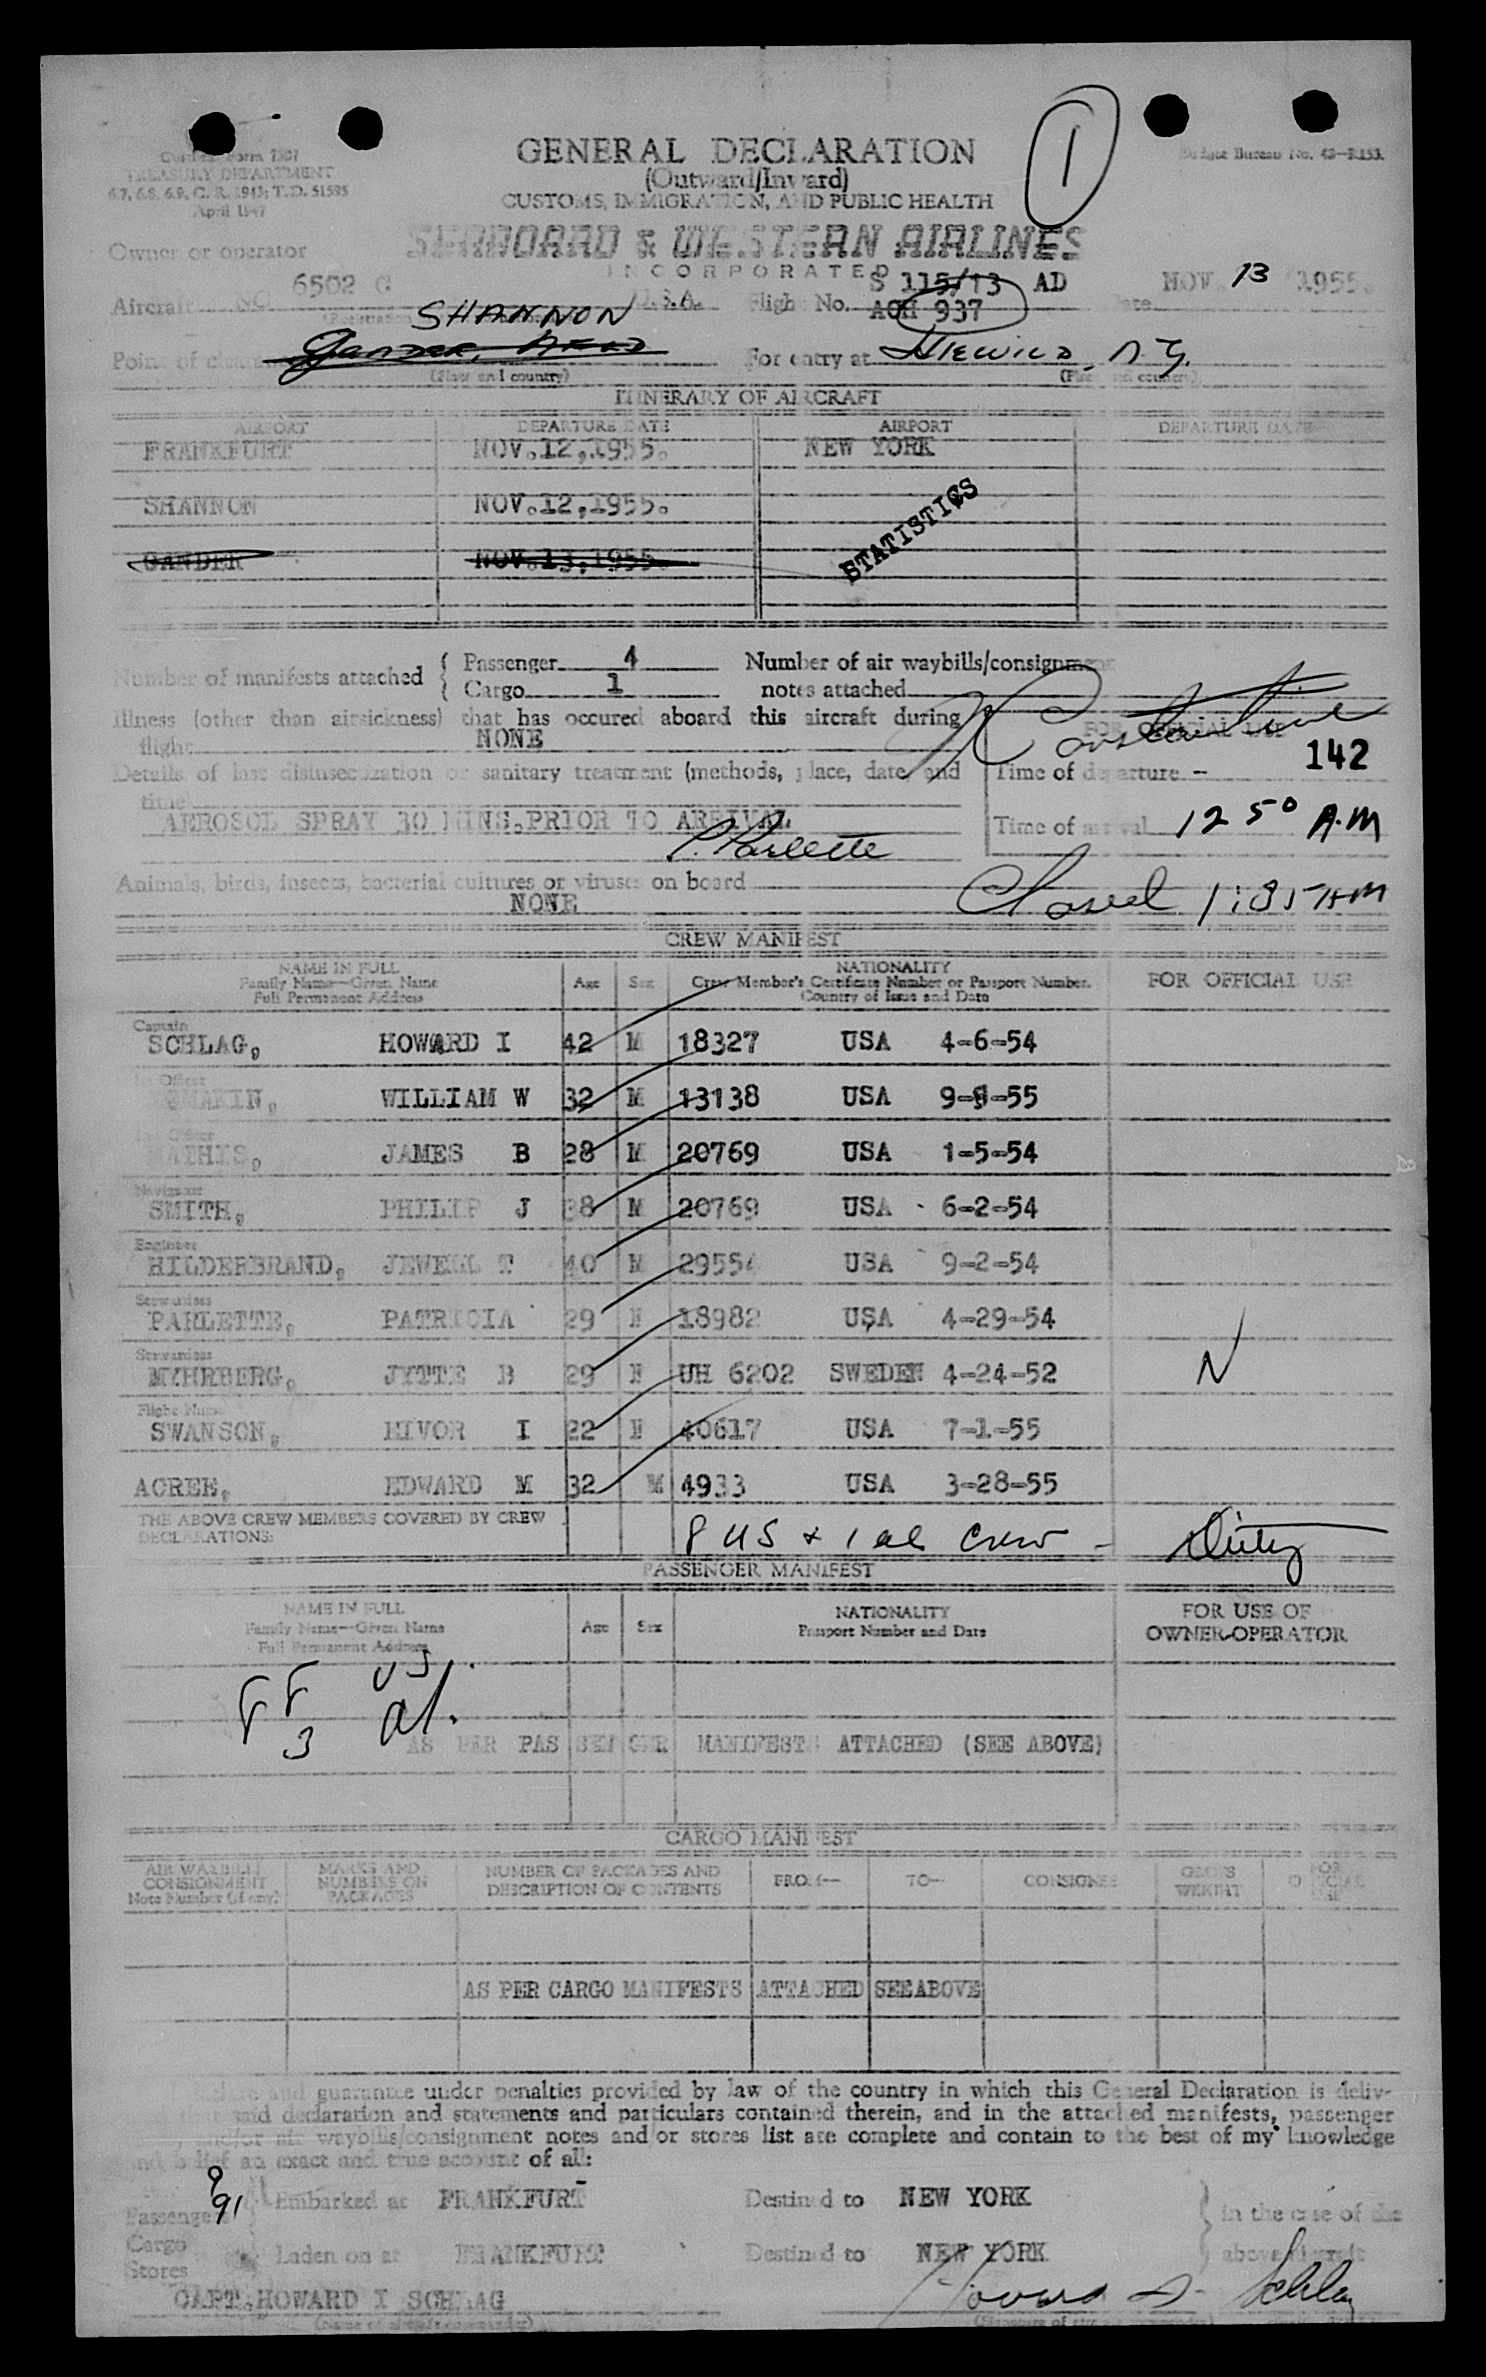 Customs Form 7507
TREASURY DEPARTMENT
6.7, 6.8, 6.9, C. R. 1943; T.D. 51595
April 1947
Budget Bureau No.
GENERAL DECLARATION
(Outward/Inward)
CUSTOMS, IMMIGRATION, AND PUBLIC HEALTH
1
Owner or operator SEABOARD & WESTERN AIRLINES
INCORPORATED
Aircraft 6502 C U.S.A. Flight No. S 115/13 AD Date NOV. 13 1955
AOH 937
SHANNON
Point of clearance Gander, NFLD For entry at IDLEWILD, N.Y.
(Place and country) (Place and country)
ITINERARY OF AIRCRAFT
AIRPORT DEPARTURE DATE AIRPORT DEPARTURE DATE
FRANKFURT NOV.12,1955. NEW YORK
SHANNON NOV.12,1955.
GANDER NOV.13,1955.
STATISTICS
Number of manifests attached { Passenger 4 Number of air waybills/consignment
Cargo 1 notes attached
Illness (other than airsickness) that has occured aboard this aircraft during
flight NONE
FOR OFFICIAL USE
Details of last disinsectization or sanitary treatment (methods, place, date, and
time)
Time of departure - 142
AEROSOL SPRAY 30 MINS.PRIOR TO ARRIVAL
P. Parlette
Time of arrival 12 50 A.M
Animals, birds, insects, bacterial cultures or viruses on board
NONE
Closed
CREW MANIFEST
NAME IN FULL
Family Name—Given Name
Full Permanent Address
Age Sex
NATIONALITY
Crew Member's Certificate Number or Passport Number.
Country of Issue and Date
FOR OFFICIAL USE
Captain
SCHLAG, HOWARD I 42 M 18327 USA 4-6-54
1st Officer
WILLIAM W 32 M 13138 USA 9-9-55
JAMES B 28 M 20769 USA 1-5-54
Navigator
SMITH, PHILIP J 38 M 20769 USA 6-2-54
Engineer
HILDERBRAND, JEWELL T 40 M 29554 USA 9-2-54
Stewardess
PARLETTE, PATRICIA 29 18982 USA 4-29-54
Stewardess
MYHRBERG, JYTTE B 29 UH 6202 SWEDEN 4-24-52 N
Flight Nurse
SWANSON, EIVOR I 22 40617 USA 7-1-55
ACREE, EDWARD M 32 M 4933 USA 3-28-55
THE ABOVE CREW MEMBERS COVERED BY CREW
DECLARATIONS:
8 US + 1 al Crew - Duty
PASSENGER MANIFEST
NAME IN FULL
Family Name—Given Name
Full Permanent Address
Age Sex
NATIONALITY
Passport Number and Date
FOR USE OF
OWNER-OPERATOR
88 US
3 al.
AS PER PASSENGER MANIFESTS ATTACHED (SEE ABOVE)
CARGO MANIFEST
AIR WAYBILL/
CONSIGNMENT
Note Number (if any)
MARKS AND
NUMBERS ON
PACKAGES
NUMBER OF PACKAGES AND
DESCRIPTION OF CONTENTS
FROM— TO— CONSIGNEE
GROSS
WEIGHT
FOR
OFFICIAL
USE
AS PER CARGO MANIFESTS ATTACHED SEE ABOVE
declare and guarantee under penalties provided by law of the country in which this General Declaration is deliv-
that said declaration and statements and particulars contained therein, and in the attached manifests, passenger
and/or air waybills/consignment notes and/or stores list are complete and contain to the best of my knowledge
and belief an exact and true account of all:
9
Passengers 91 Embarked at FRANKFURT Destined to NEW YORK in the case of the
Cargo
Stores Laden on at FRANKFURT Destined to NEW YORK above aircraft
CAPT.HOWARD I SCHLAG Howard I. Schlag